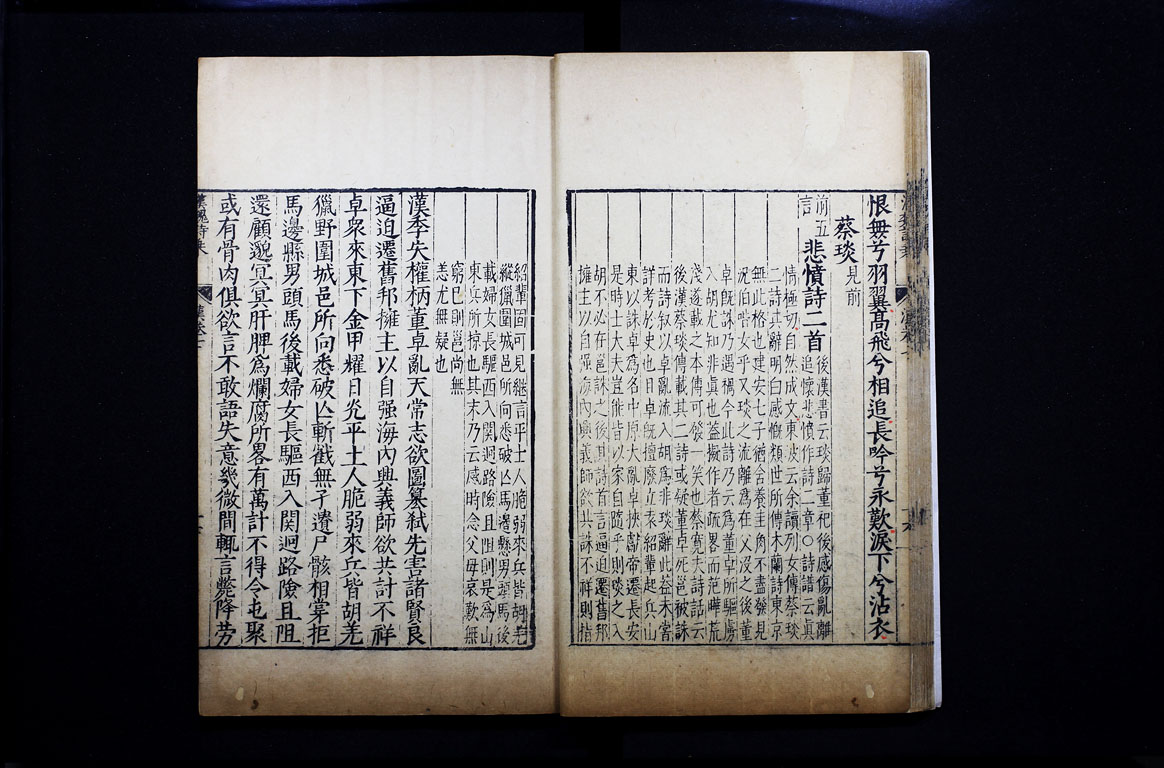 恨毋兮羽翼高飛兮相追長吟兮永歎淚下兮沾衣
蔡琰見前
前五言悲憤詩二首
後漢書云琰歸董祀後感傷亂離
追懷悲憤作詩二章○詩譜云眞
情極切自然成文東坡云余讀列女傳蔡琰
二詩其辭明白感慨類世所傳木蘭詩東京
無此格也建安七子猶舍養圭角不盡發見
況伯喈女乎又琰之流離爲在父沒之後董
卓旣誅乃遇禍今此詩乃云爲董卓所驅虜
入胡尤知非眞也蓋擬作者疏畧而范曄荒
淺遂載之本傳可發一笑也蔡寬夫詩話云
後漢蔡琰傳載其二詩或疑董卓死邕被誅
而詩叙以卓亂流入胡爲非琰辭此益未嘗
詳考於史也且卓旣擅廢立袁紹輩起兵山
東以誅卓爲名中原大亂卓挾獻帝遷長安
是時士大夫豈能皆以家自隨乎則琰之入
胡不必在邕誅之後其詩首言逼迫遷舊邦
擁主以自强海內興義師欲共誅不祥則指
紹輩固可見繼言平士人脆弱來兵皆胡羌
縱獵圍城邑所向悉破亾馬邊縣男頭馬後
載婦女長驅西入関迥路險且阻則是爲山
東兵所掠也其末乃云感時念父母哀歎無
窮巳則邕尚無
恙尤無疑也
漢季失權柄董卓亂天常志欲圖簒弑先害諸賢良
逼迫遷舊邦擁主以自强海內興義師欲共計不祥
卓衆來東下金甲耀日炎平土人脆弱來兵皆胡羌
獵野圍城邑所向悉破亾斬截無孑遺尸骸相掌拒
馬邊縣男頭馬後載婦女長驅西入関迥路險且阻
還顧邈冥冥肝脾爲爛腐所畧有萬計不得令屯聚
或有骨肉俱欲言不敢語失意幾微間輒言斃降虜